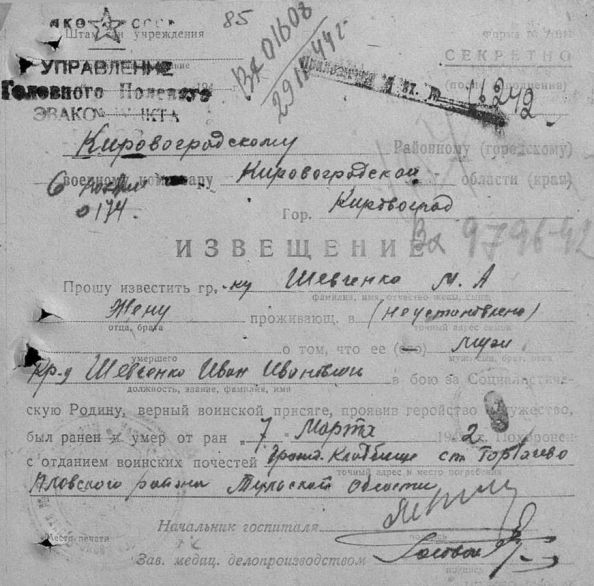 НКО СССР
85
Штамп учреждения
СЕКРЕТНО
УПРАВЛЕНИЕ
Головного Полевого
ЭВАКО
ПУНКТА
Вх 01608
29 44 г.
Кировоградскому Районному (городскому)
военному комиссару Кировоградской области (края)
174.
Гор. Кировоград
ИЗВЕЩЕНИЕ
Вх 9796-42
Прошу известить гр. ку Шевченко М. А
фамилия, имя, отчество жены, сына,
Жену проживающ. в (неустановлено)
отца, брата точный адрес семьи
о том, что ее (его) муж
умершего муж, сын, брат
кр-ц Шевченко Иван Иванович в бою за Социалистиче-
должность, звание, фамилия, имя
скую Родину, верный воинской присяге, проявив геройство и мужество,
был ранен и умер от ран 7 Марта 194 2 г. Похоронен
с отданием воинских почестей гражд. Кладбище ст. Горбачево
точный адрес и место погребения
района Тульской Области
Начальник госпиталя
Место печати
подпись
Зав. медиц. делопроизводством
подпись